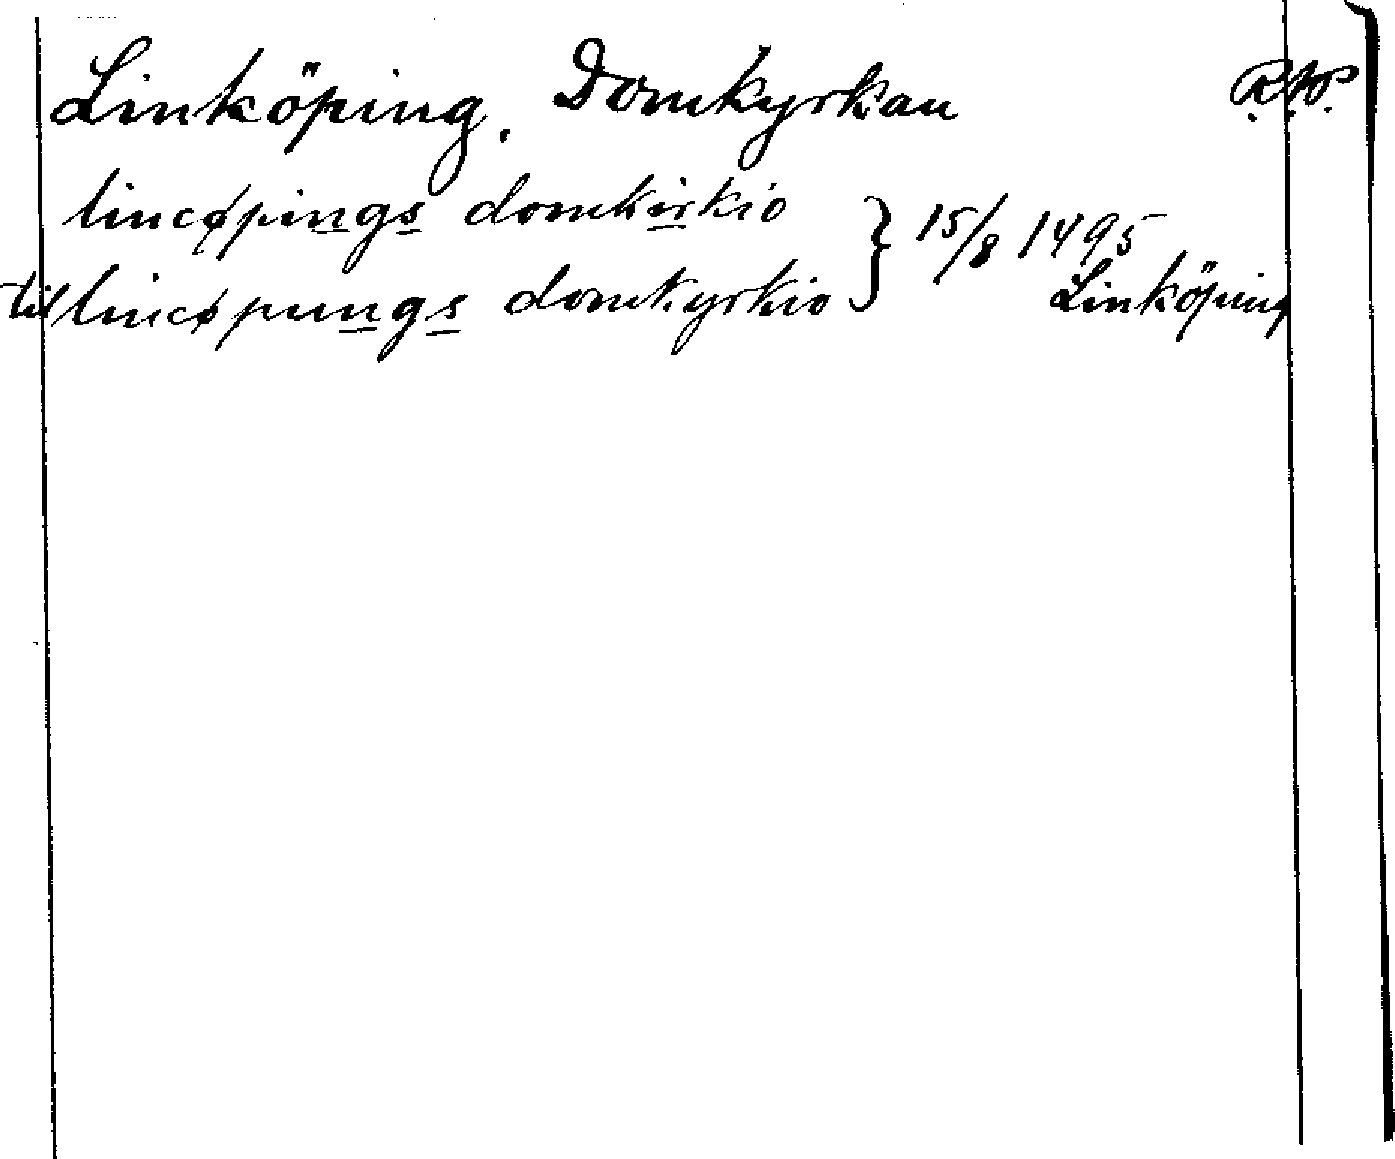 Linköping. Domkyrkan R.A.P.
lincøpings domkirkio } 15/8 1495
til lincøpungs domkyrkio Linköping